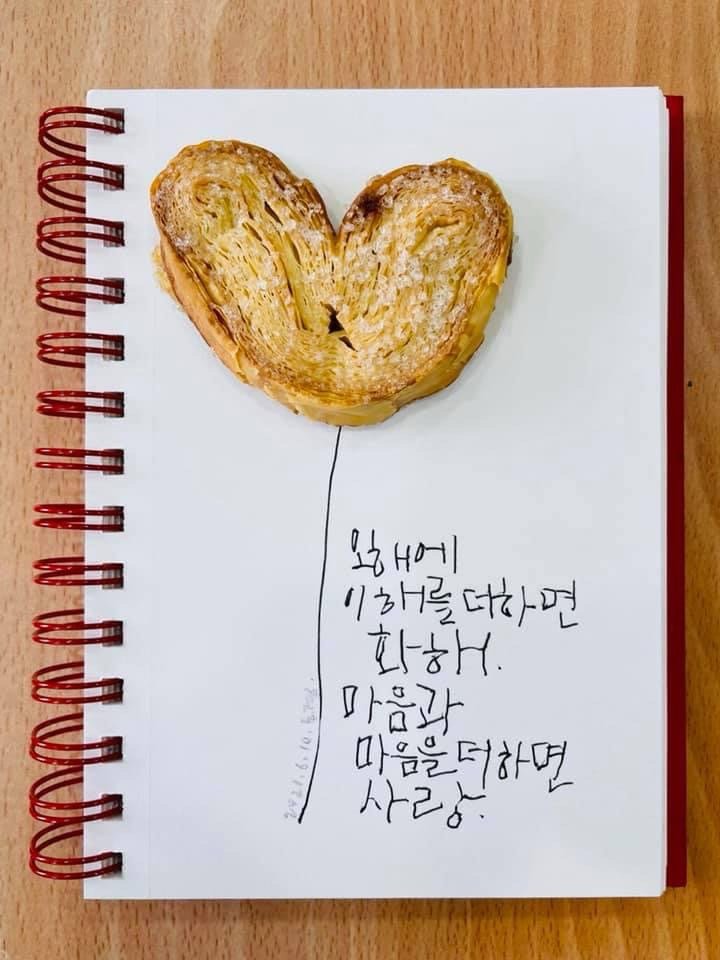 오해에
이해를 더하면
화해.
마음과
마음을 더하면
사랑.
2021.6.10.